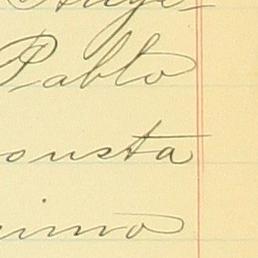 Pablo
onsta
imo